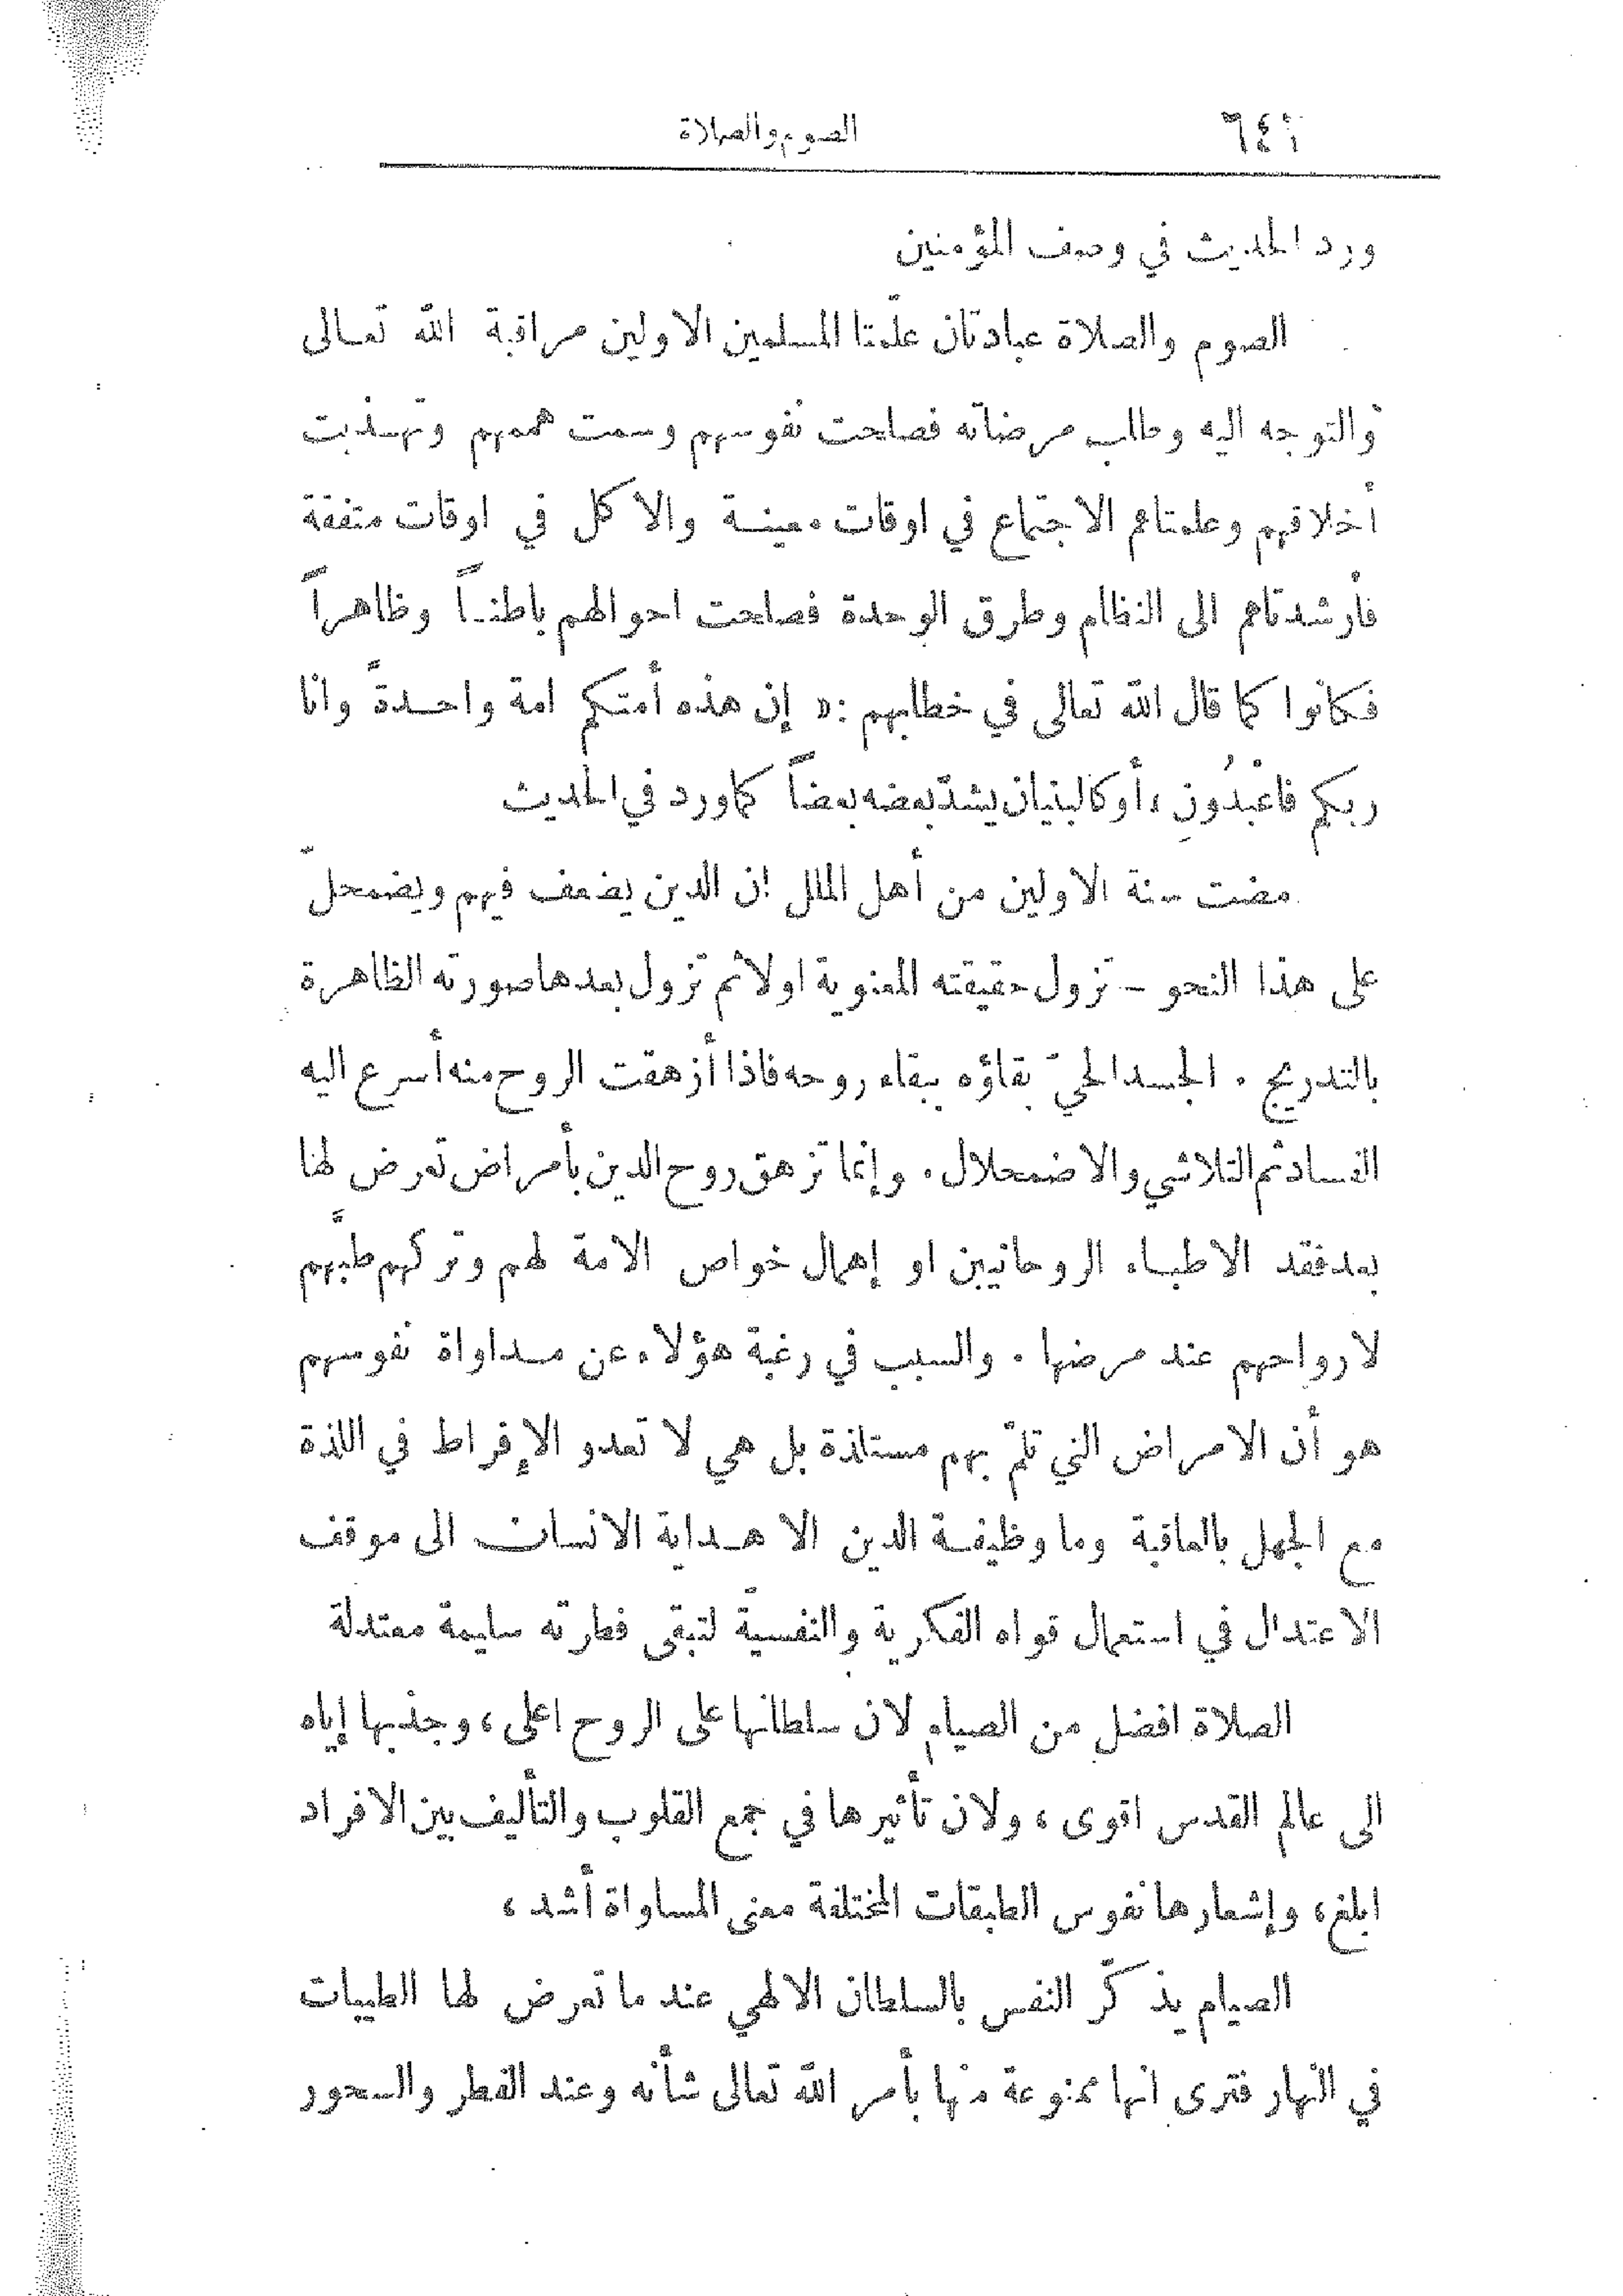 ٦٤٦ الصوم والصلاة
ورد الحديث في وصف المؤمنين
الصوم والصلاة عبادتان علّمتا المسلمين الاولين مراقبة الله تعالى
والتوجه اليه وطلب مرضاته فصلحت نفوسهم وسمت هممهم وتهذبت
أخلاقهم وعلمتاهم الاجتماع في اوقات معينة والاكل في اوقات متفقة
فأرشدتاهم الى النظام وطرق الوحدة فصلحت احوالهم باطناً وظاهراً
فكانوا كما قال الله تعالى في خطابهم : « إن هذه أمتكم امة واحدةً وانا
ربكم فاعْبُدُونِ ، أو كالبنيان يشدّ بعضه بعضاً كما ورد في الحديث
مضت سنة الاولين من أهل الملل ان الدين يضعف فيهم ويضمحلّ
على هذا النحو - تزول حقيقته المعنوية اولا ثم تزول بعدها صورته الظاهرة
بالتدريج . الجسد الحيّ بقاؤه ببقاء روحه فاذا أزهقت الروح منه أسرع اليه
الفساد ثم التلاشي والاضمحلال . وإنما تزهق روح الدين بأمراض تعرض لها
بعد فقد الاطباء الروحانيين او إهمال خواص الامة لهم وتركهم طبَّهم
لارواحهم عند مرضها . والسبب في رغبة هؤلاء عن مداواة نفوسهم
هو أن الامراض التي تلمّ بهم مستلذة بل هي لا تعدو الإفراط في اللذة
مع الجهل بالعاقبة وما وظيفة الدين الا هداية الانسان الى موقف
الاعتدال في استعمال قواه الفكرية والنفسية لتبقى فطرته سليمة معتدلة
الصلاة افضل من الصيام لان سلطانها على الروح اعلى ، وجذبها إياه
الى عالم القدس اقوى ، ولان تأثيرها في جمع القلوب والتأليف بين الافراد
ابلغ ، وإشعارها نفوس الطبقات المختلفة معنى المساواة أشد ،
الصيام يذكّر النفس بالسلطان الالهي عند ما تعرض لها الطيبات
في النهار فترى انها ممنوعة منها بأمر الله تعالى شأنه وعند الفطر والسحور